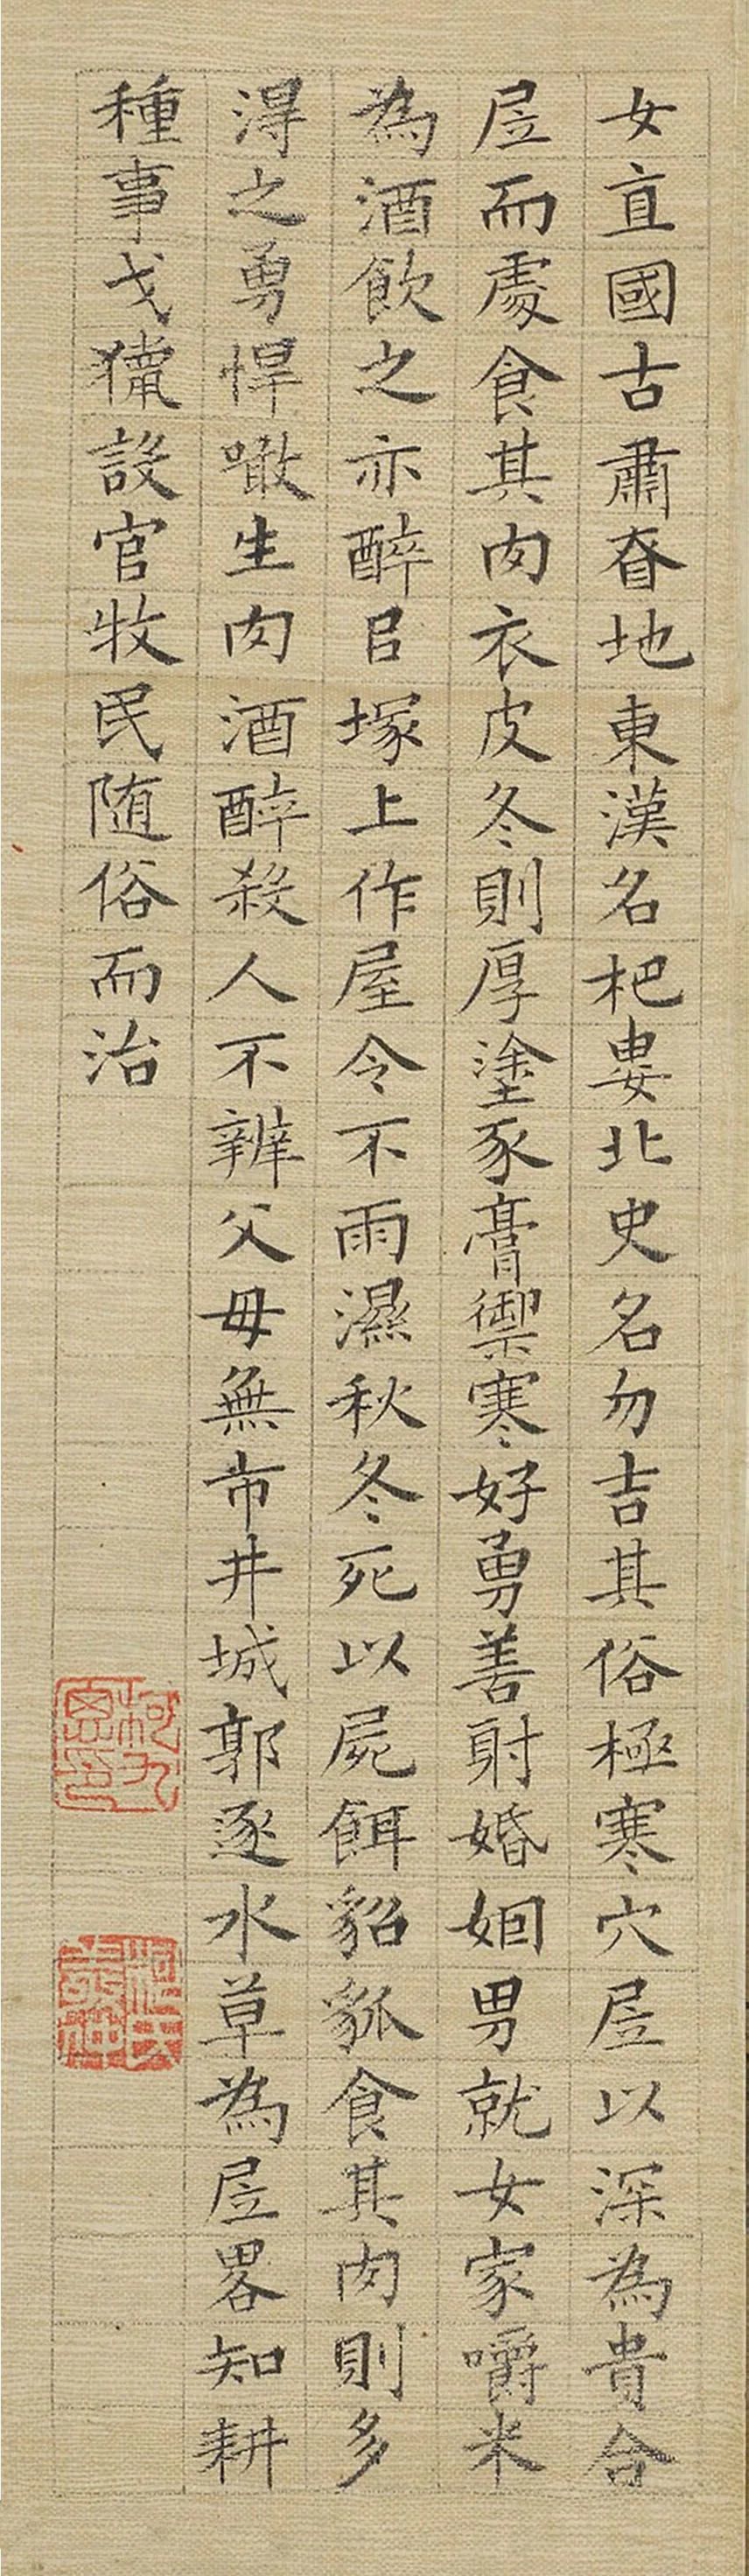 女直國古肅㫪地東漢名杷婁北史名勿吉其俗極寒穴𡱈以深為貴合
𡱈而處食其肉衣皮冬則厚塗豕膏禦寒好勇善射婚姻男就女家嚼米
為酒飲之亦醉㠯塚上作屋令不雨濕秋冬死以屍餌貂狐食其肉則多
淂之勇悍噉生肉酒醉殺人不辨父母無市井城郭逐水草為𡱈畧知耕
種事弋獵設官牧民随俗而治
柯九思印